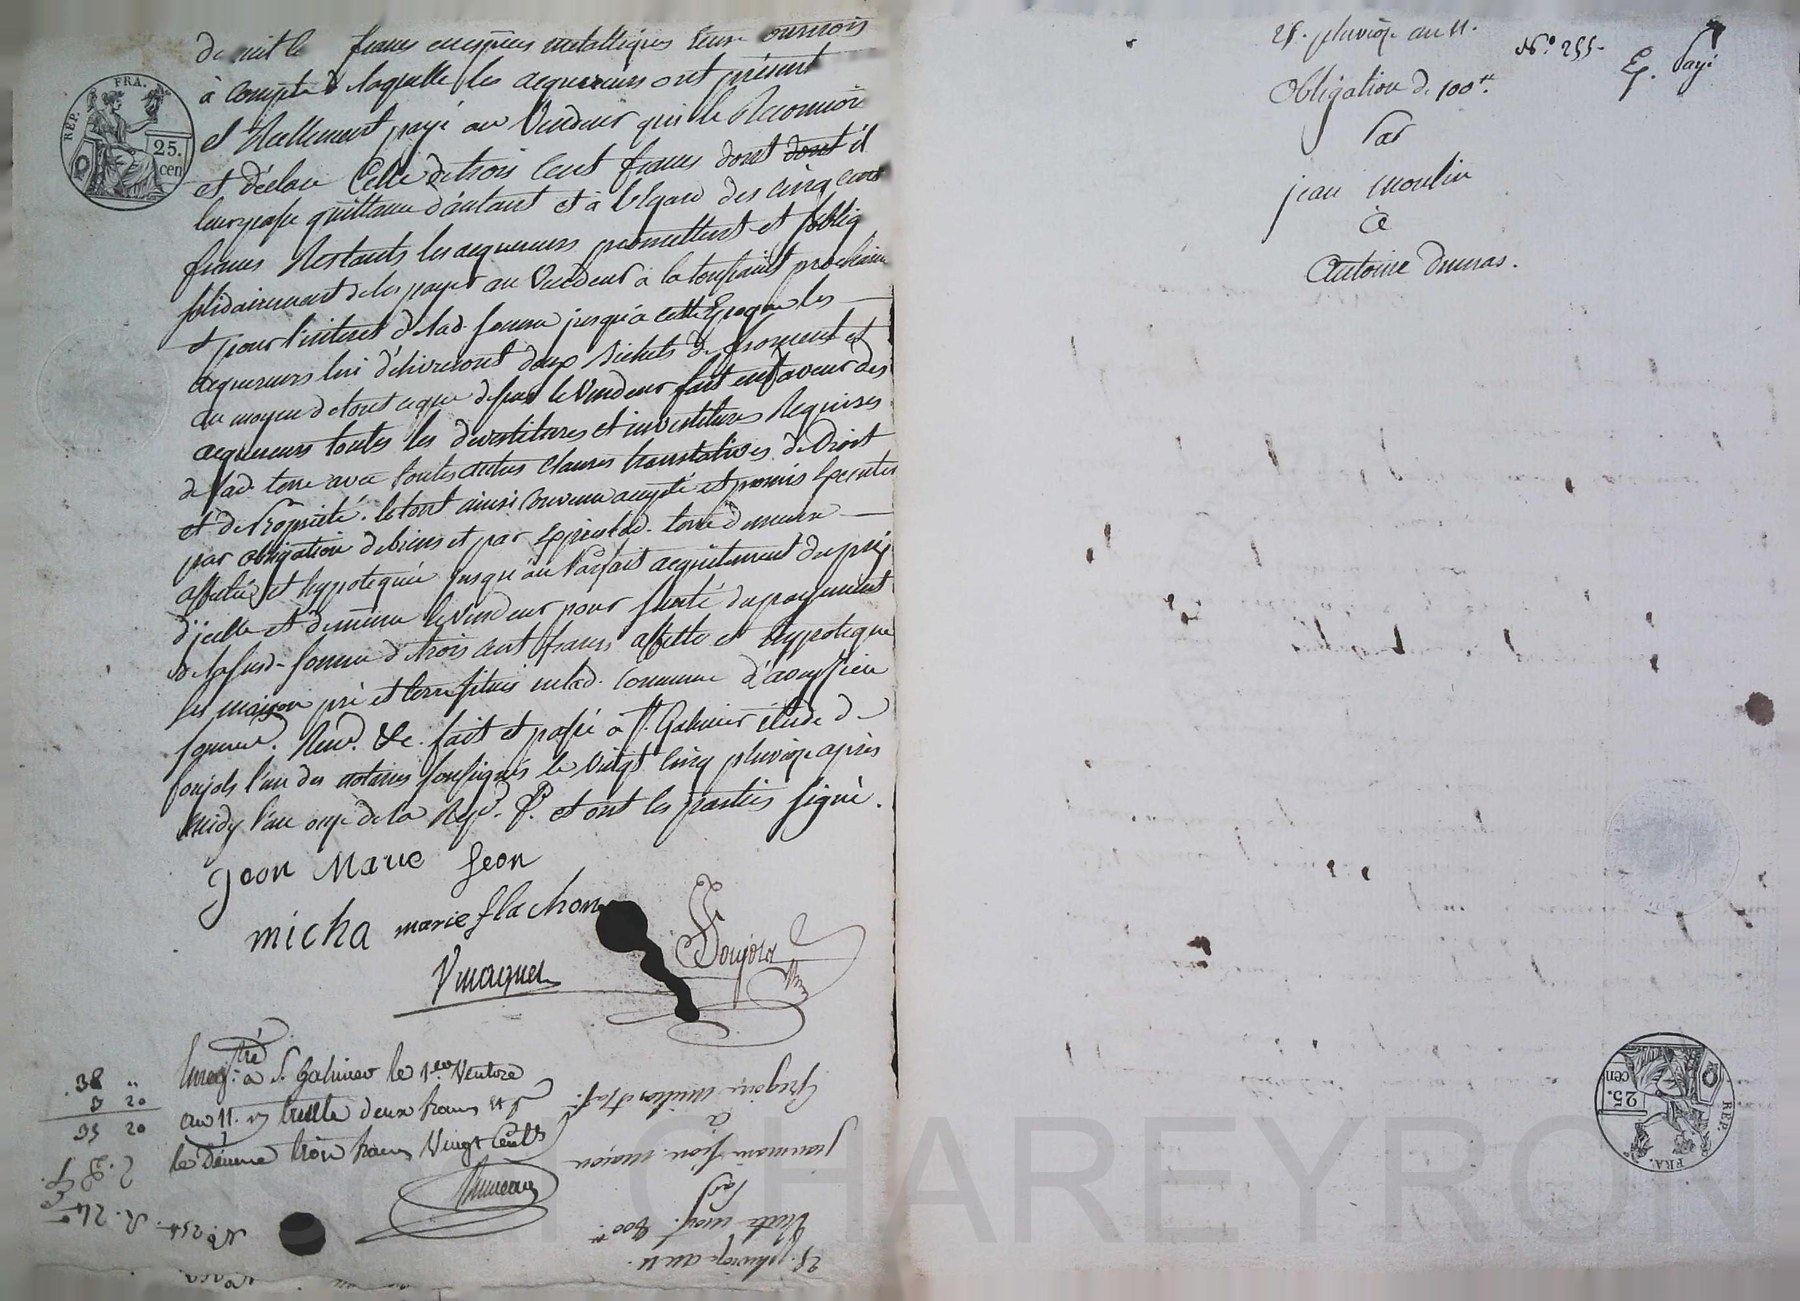 de huit cent francs en especes metalliques Sur Somme
à compte d laquelle les acquereurs ont présent
et Reellement payé au Vendeur qui le Reconnoit
et déclare Celle de trois Cent francs dont dont il
leur passe quittance d'autant et à l'égard des cinq cent
francs Restants les acquereurs promettent et soblig
solidairement de les payer au Vendeur à la toussaint prochaine
et pour l'interet d lad. somme jusqu'à cette Epoque les
acquereurs lui délivreront deux bichets de froment et
au moyen de tout ce que dessus le Vendeur fait en faveur des
acquereurs toutes les devestitures et investitures Requises
de lad. terre avec toutes autres Clauses translatives de Droit
et de Propriété. le tout ainsi Convenu accepté et promis Executer
par obligation de biens et par Exprès lad. terre demeure
affectée et hypotequée jusqu'au Parfait acquittement du prix
d'jcelle et de même le Vendeur pour sureté du payement
de lasusd. somme de trois cent francs affecte et hypoteque
ses maison pré et terre situés en lad. Commune d'aveyzieu
soumis. Renc. &c. fait et passé à St. Galmier étude de
soujols l'un des notaires soussignés le Vingt Cinq pluviose après
midy l'an onze de la Rep. f. et ont les parties signé.
Jean Marie Geon
micha marie flachon
Vmagnet
Soujols
Enreg.tré à St. Galmier le 1.er Ventose
an 11. R trente deux francs et p
le dixieme trois francs Vingt Cent.
38 "
3 20
35 20
N.º 254
25. pluviose an 11.
Vente moy. 800.tt
Par
jean marie geon
à
25. pluviose an 11.
N.º 255.
Payé
Obligation de 100.tt
Par
jean moulin
à
Antoine dumas.
REP. FRA.
25. cen
REP. FRA.
25. cen
CHAREYRON